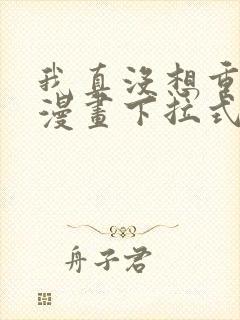 我真沒想重
漫畫下拉式
舟子君